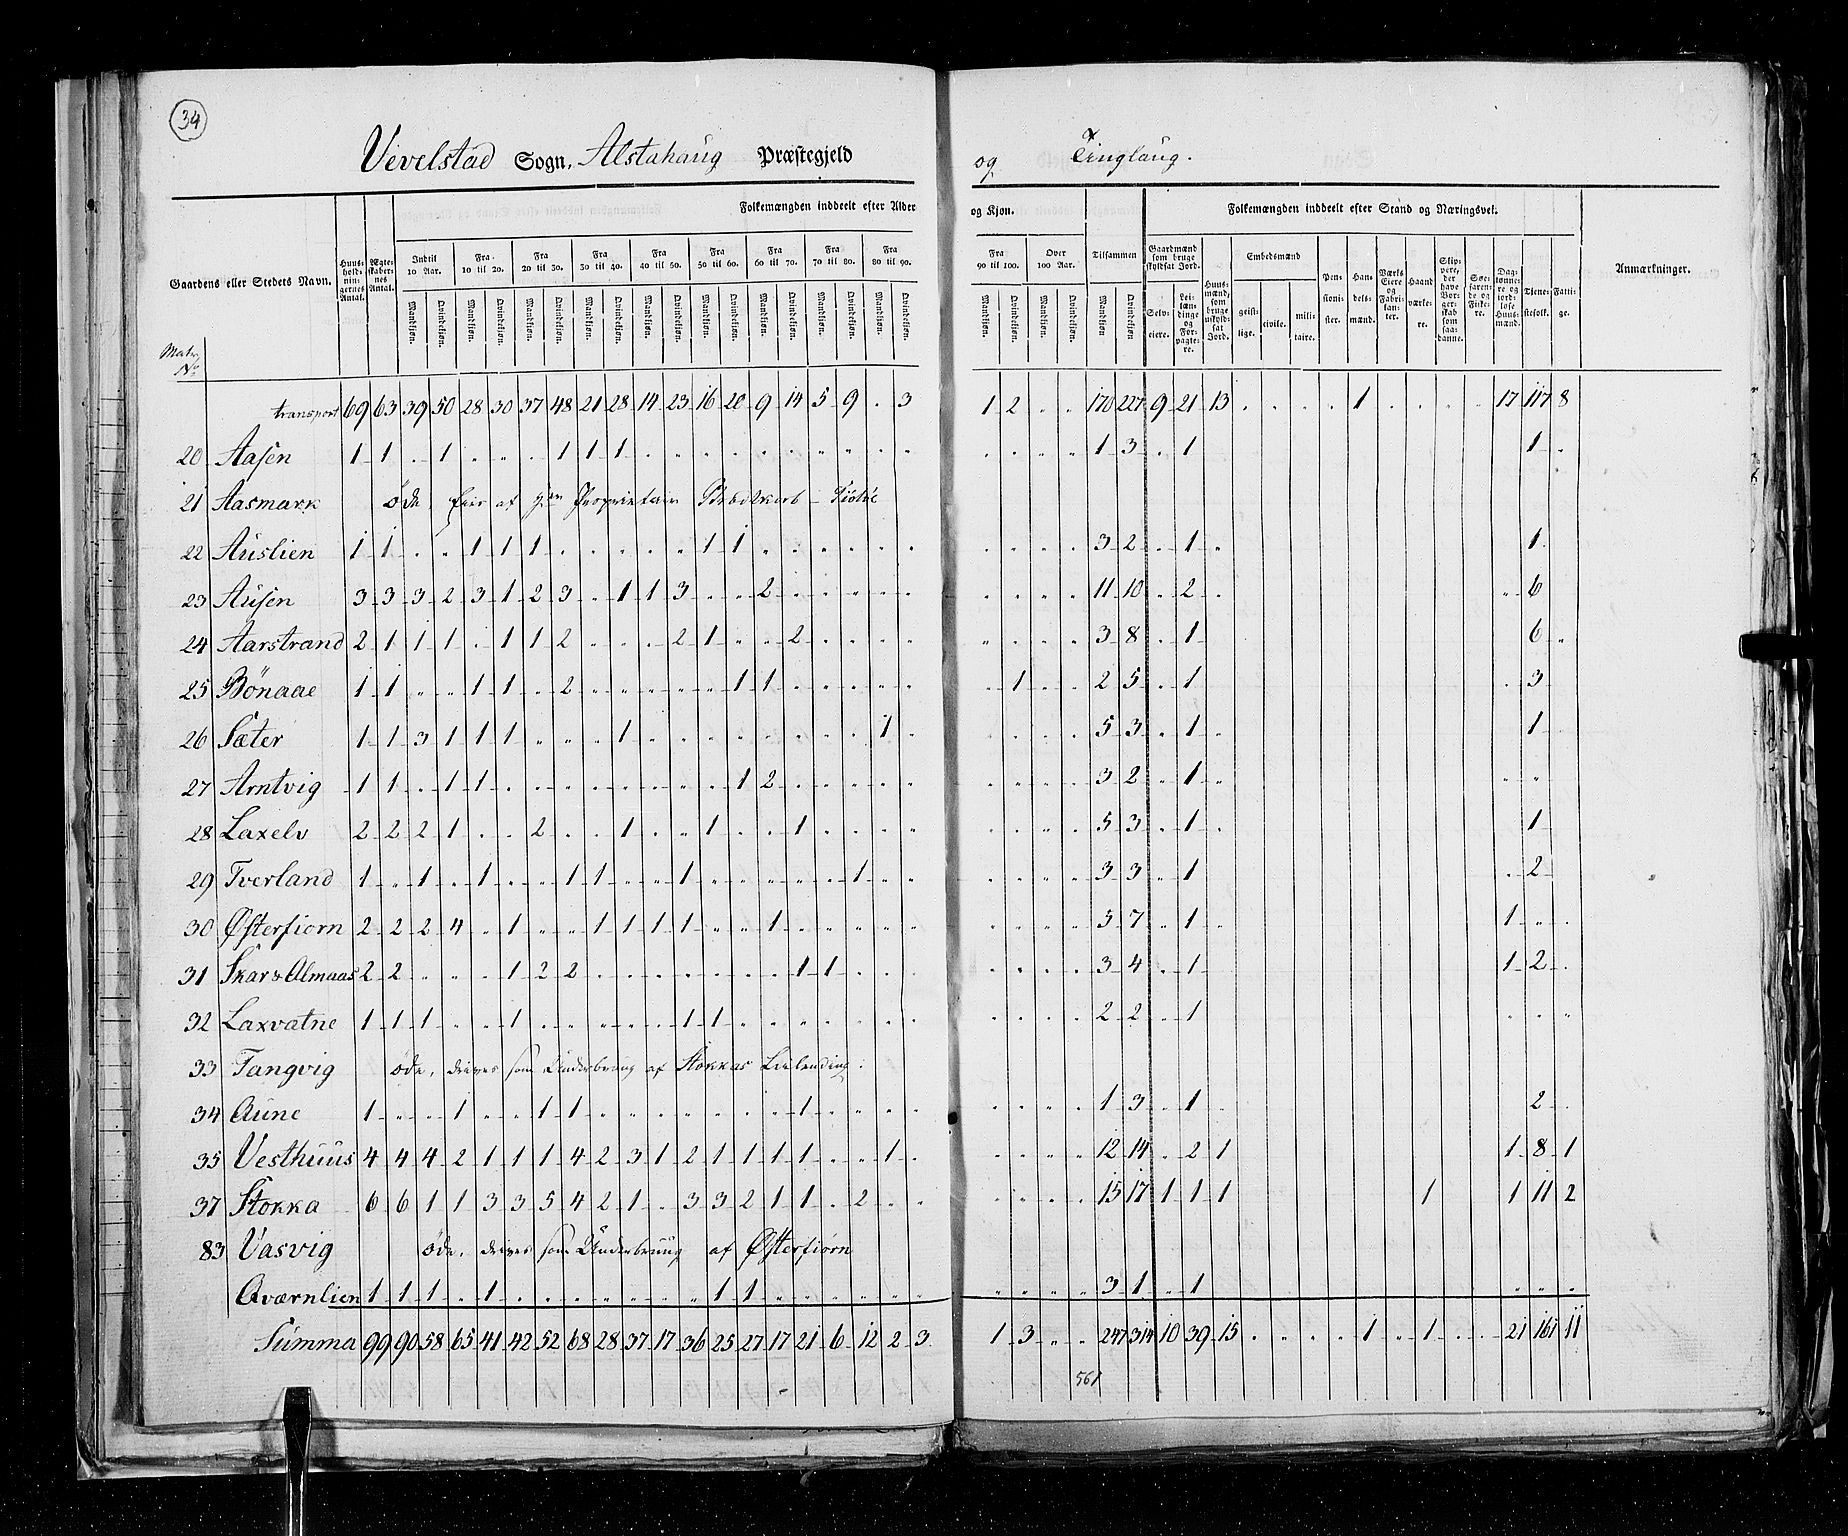 34
Vevelstad Sogn, Alstahaug Præstegjeld og Tinglaug.
Gaardens eller Stedets Navn. Huusholdningernes Antal. Ægteskabernes Antal. Folkemængden inddeelt efter Alder og Kjøn. Tilsammen Folkemængden inddeelt efter Stand og Næringsvei. Anmærkninger.
Indtil 10 Aar. Fra 10 til 20. Fra 20 til 30. Fra 30 til 40. Fra 40 til 50. Fra 50 til 60. Fra 60 til 70. Fra 70 til 80. Fra 80 til 90. Fra 90 til 100. Over 100 Aar.
Mandkjøn. Qvindekjøn.
Gaardmænd som bruge skyldsat Jord. Selveiere. Leilændinge og Forpagtere. Huusmænd, som bruge uskyldsat Jord. Embedsmænd geistlige. civile. militaire. Pensionister. Handelsmænd. Værkseiere og Fabrikanter. Haandværkere. Søefarende og Fiskere. Daglønnere og jordløse Huusmænd. Tjenestefolk. Fattige.
Matr. No
transport 69 63 39 50 28 30 37 48 21 28 14 23 16 20 9 14 5 9 . 3 1 2 . . 170 227 9 21 13 . . . . 1 . . . . 17 117 8
20 Aasen 1 1 . 1 . . . 1 1 1 . . . . . . . . . . . . . . 1 3 . 1 1
21 Aasmark öde, Eies af Proprietair
22 Auslien 1 1 . . 1 1 1 . . . . . 1 1 . . . . . . . . . . 3 2 . 1 . 1
23 Ausen 3 3 3 2 3 1 2 3 . 1 1 3 . . 2 . . . . . . . . . 11 10 . 2 . . 6
24 Aarstrand 2 1 1 1 . 1 1 2 . . . 2 1 . . 2 . . . . . . . . 3 8 . 1 6 .
25 Bönaae 1 1 . . 1 1 . 2 . . . . . 1 1 . . . . . . 1 . . 2 5 . 1 . 3
26 Sæter 1 1 3 1 1 1 . . . 1 . . . . . . . . 1 . . . . . 5 3 . 1 . 1
27 Arntvig 1 1 . 1 1 . . . . . . . . 1 2 . . . . . . . . . 3 2 . 1 . . .
28 Laxelv 2 2 2 1 . . 2 . . 1 . . 1 . . 1 . . . . . . . . 5 3 . 1 . 1
29 Tverland 1 . 1 . 1 . . 1 1 . . 1 . . . . . 1 . . . . . . 3 3 . 1 . 2
30 Østerfiorn 2 2 2 4 . 1 . . 1 1 1 1 . . 1 . . . . . . . . . 3 7 . 1 . 1 . .
31 Skar & Almaas 2 2 . . . 1 2 2 . . . . . . . 1 1 . . . . . . . 3 4 . 1 1 2 .
32 Laxvatne 1 1 1 . . 1 . . . . . 1 1 . . . . . . . . . . . 2 2 . 1 . . .
33 Tangvig öde, drives som Underbruug af Stokkas Leilending.
34 Aune 1 . . 1 . . 1 1 . . . . . . . 1 . . . . . . . . 1 3 . 1 . 2 .
35 Vesthuus 4 4 4 2 1 1 1 4 2 3 1 2 1 1 1 1 . . 1 . . . . . 12 14 . 2 1 1 8 1
37 Stokka 6 6 1 1 3 3 5 4 2 1 . 3 3 2 1 1 . 2 . . . . . . 15 17 1 1 1 1 1 11 2
83 Vasvig öde, drives som Underbruug af Østerfiørn
Qværnlien 1 1 1 . 1 . . . . . . . 1 1 . . . . . . . . . . 3 1 . 1 . . .
Summa 99 90 58 65 41 42 52 68 28 37 17 36 25 27 17 21 6 12 2 3 1 3 . . 247 314 10 39 15 . . . . 1 . 1 . . 21 161 11
561